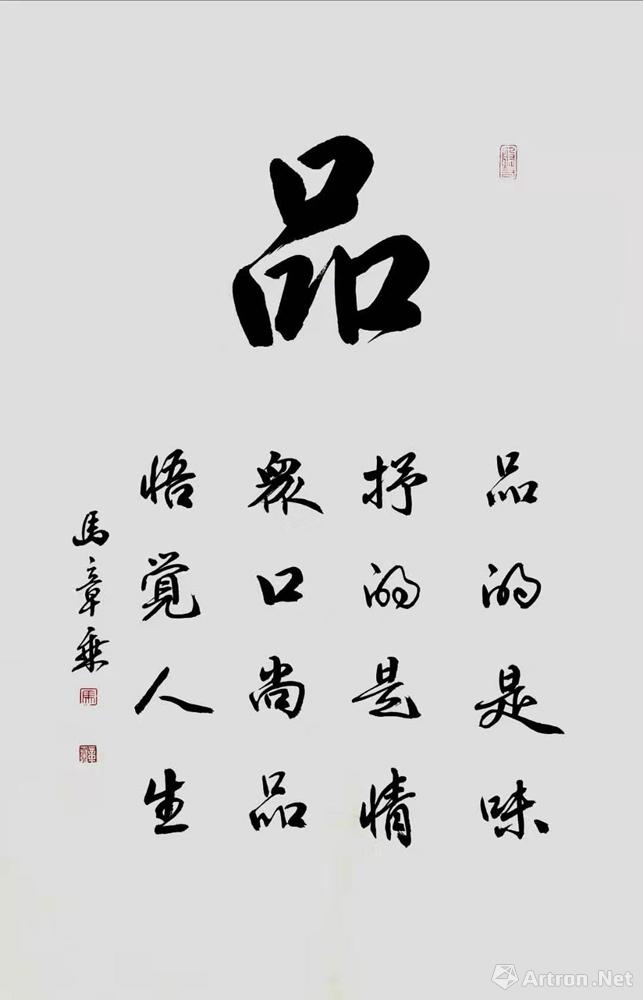 品
品的是味
抒的是情
眾口尚品
悟覚人生
馬章乘
Artron.Net